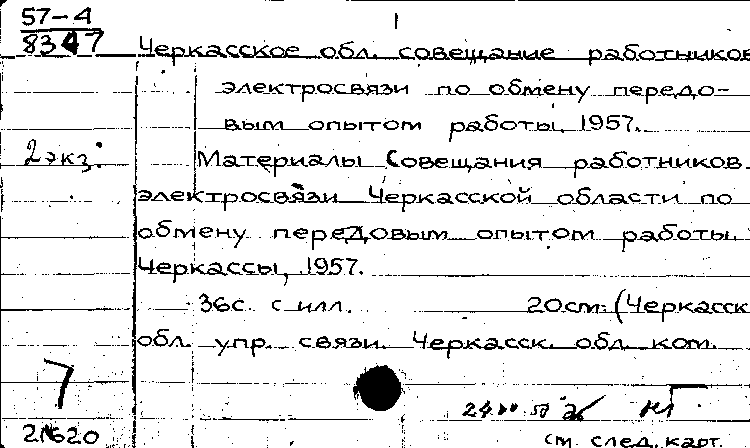 57-4
8347
1
Черкасское обл. совещание работников
электросвязи по обмену передо-
вым опытом работы. 1957.
2 экз.
Материалы Совещания работников
электросвязи Черкасской области по
обмену передовым опытом работы.
Черкассы, 1957.
36с. с илл. 20см. (Черкасск
обл. упр. связи. Черкасск. обл. ком.
7
см. след. карт.